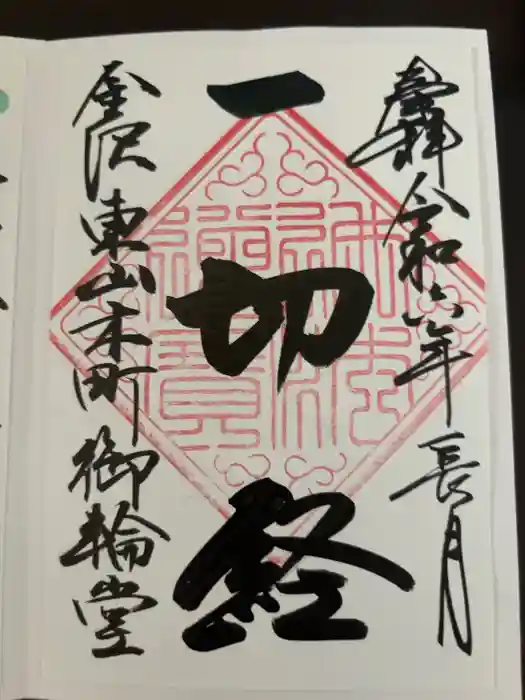 奉拝 令和六年 長月
一切経
金沢 東山木町 御輪堂